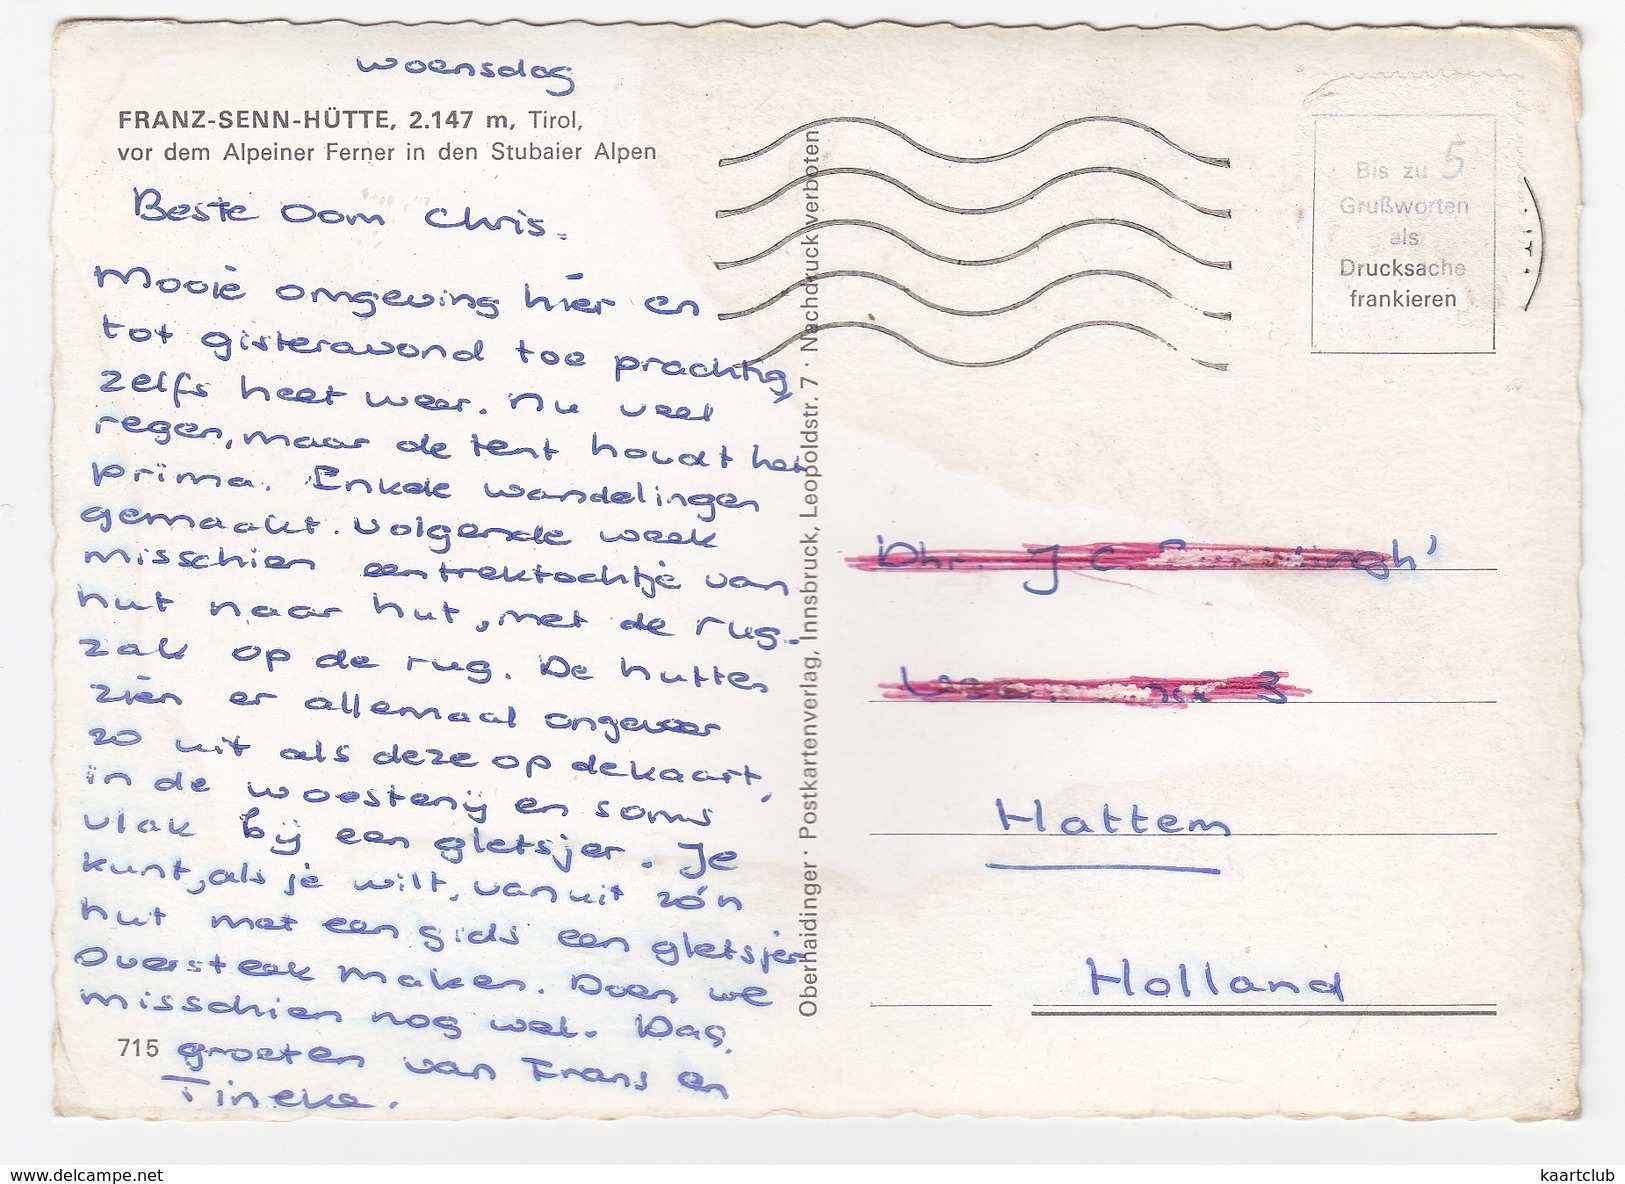 woensdag
FRANZ-SENN-HÜTTE, 2.147 m, Tirol,
vor dem Alpeiner Ferner in den Stubaier Alpen
Beste Oom Chris.
Mooie omgeving hier en
tot gisteravond toe prachtig,
zelfs heet weer. Nu veel
regen, maar de tent houdt het
prima. Enkele wandelingen
gemaakt. Volgende week
misschien een trektochtje van
hut naar hut, met de rug-
zak op de rug. De hutten
zien er allemaal ongeveer
zo uit als deze op de kaart,
in de woestenij en soms
vlak bij een gletsjer. Je
kunt, als je wilt, vanuit zó'n
hut met een gids een gletsjer
oversteek maken. Doen we
misschien nog wel. Dag,
715
groeten van Frans en
Tineke.
Oberhaidinger · Postkartenverlag, Innsbruck, Leopoldstr. 7 · Nachdruck verboten
Bis zu 5
Grußworten
als
Drucksache
frankieren
Dhr. J.C.
3
Hattem
Holland
www.delcampe.net
kaartclub